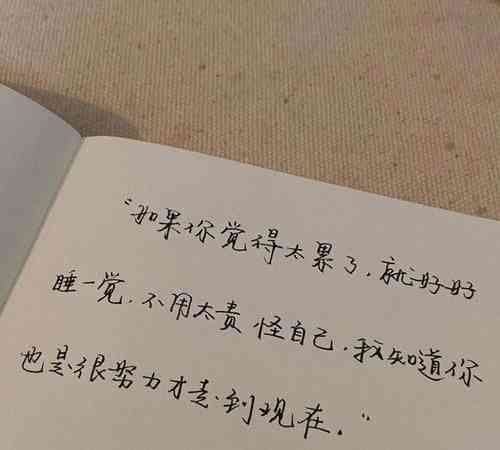 “如果你觉得太累了，就好好
睡一觉，不用太责怪自己，我知道你
也是很努力才走到现在．”